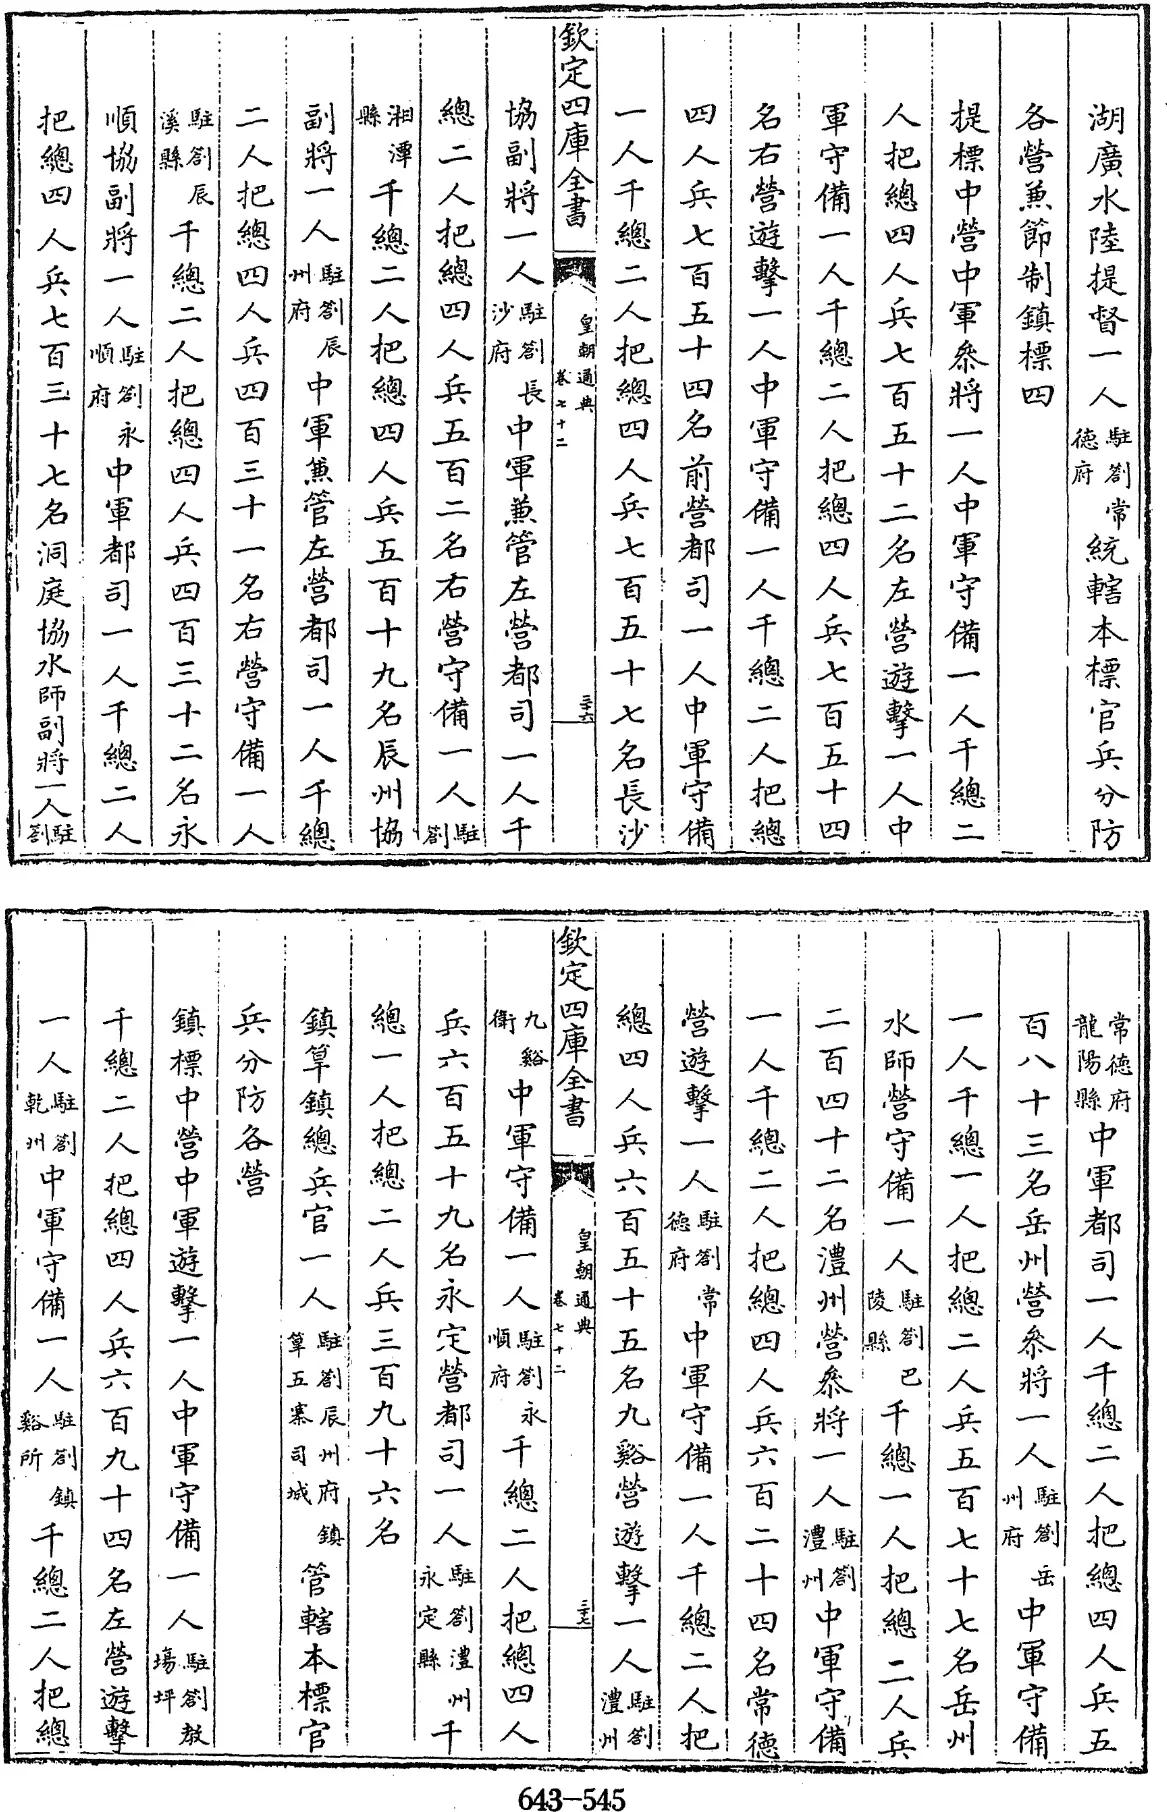 湖廣水陸提督一人駐劄常德府統轄本標官兵分防
各營兼節制鎮標四
提標中營中軍叅將一人中軍守備一人千總二
人把總四人兵七百五十二名左營遊擊一人中
軍守備一人千總二人把總四人兵七百五十四
名右營遊擊一人中軍守備一人千總二人把總
四人兵七百五十四名前營都司一人中軍守備
一人千總二人把總四人兵七百五十七名長沙
欽定四庫全書
皇朝通典
卷七十二
三十六
協副將一人駐劄長沙府中軍兼管左營都司一人千
總二人把總四人兵五百二名右營守備一人駐劄
湘潭縣千總二人把總四人兵五百十九名辰州協
副將一人駐劄辰州府中軍兼管左營都司一人千總
二人把總四人兵四百三十一名右營守備一人
駐劄辰溪縣千總二人把總四人兵四百三十二名永
順協副將一人駐劄永順府中軍都司一人千總二人
把總四人兵七百三十七名洞庭協水師副將一人駐劄
常德府龍陽縣中軍都司一人千總二人把總四人兵五
百八十三名岳州營叅將一人駐劄岳州府中軍守備
一人千總一人把總二人兵五百七十七名岳州
水師營守備一人駐劄巴陵縣千總一人把總二人兵
二百四十二名澧州營叅將一人駐劄澧州中軍守備
一人千總二人把總四人兵六百二十四名常德
營遊擊一人駐劄常德府中軍守備一人千總二人把
總四人兵六百五十五名九谿營遊擊一人駐劄澧州
欽定四庫全書
皇朝通典
卷七十二
三十七
九谿衛中軍守備一人駐劄永順府千總二人把總四人
兵六百五十九名永定營都司一人駐劄澧州永定縣千
總一人把總二人兵三百九十六名
鎮筸鎮總兵官一人駐劄辰州府鎮筸五寨司城管轄本標官
兵分防各營
鎮標中營中軍遊擊一人中軍守備一人駐劄教塲坪
千總二人把總四人兵六百九十四名左營遊擊
一人駐劄乾州中軍守備一人駐劄鎮谿所千總二人把總
643-545